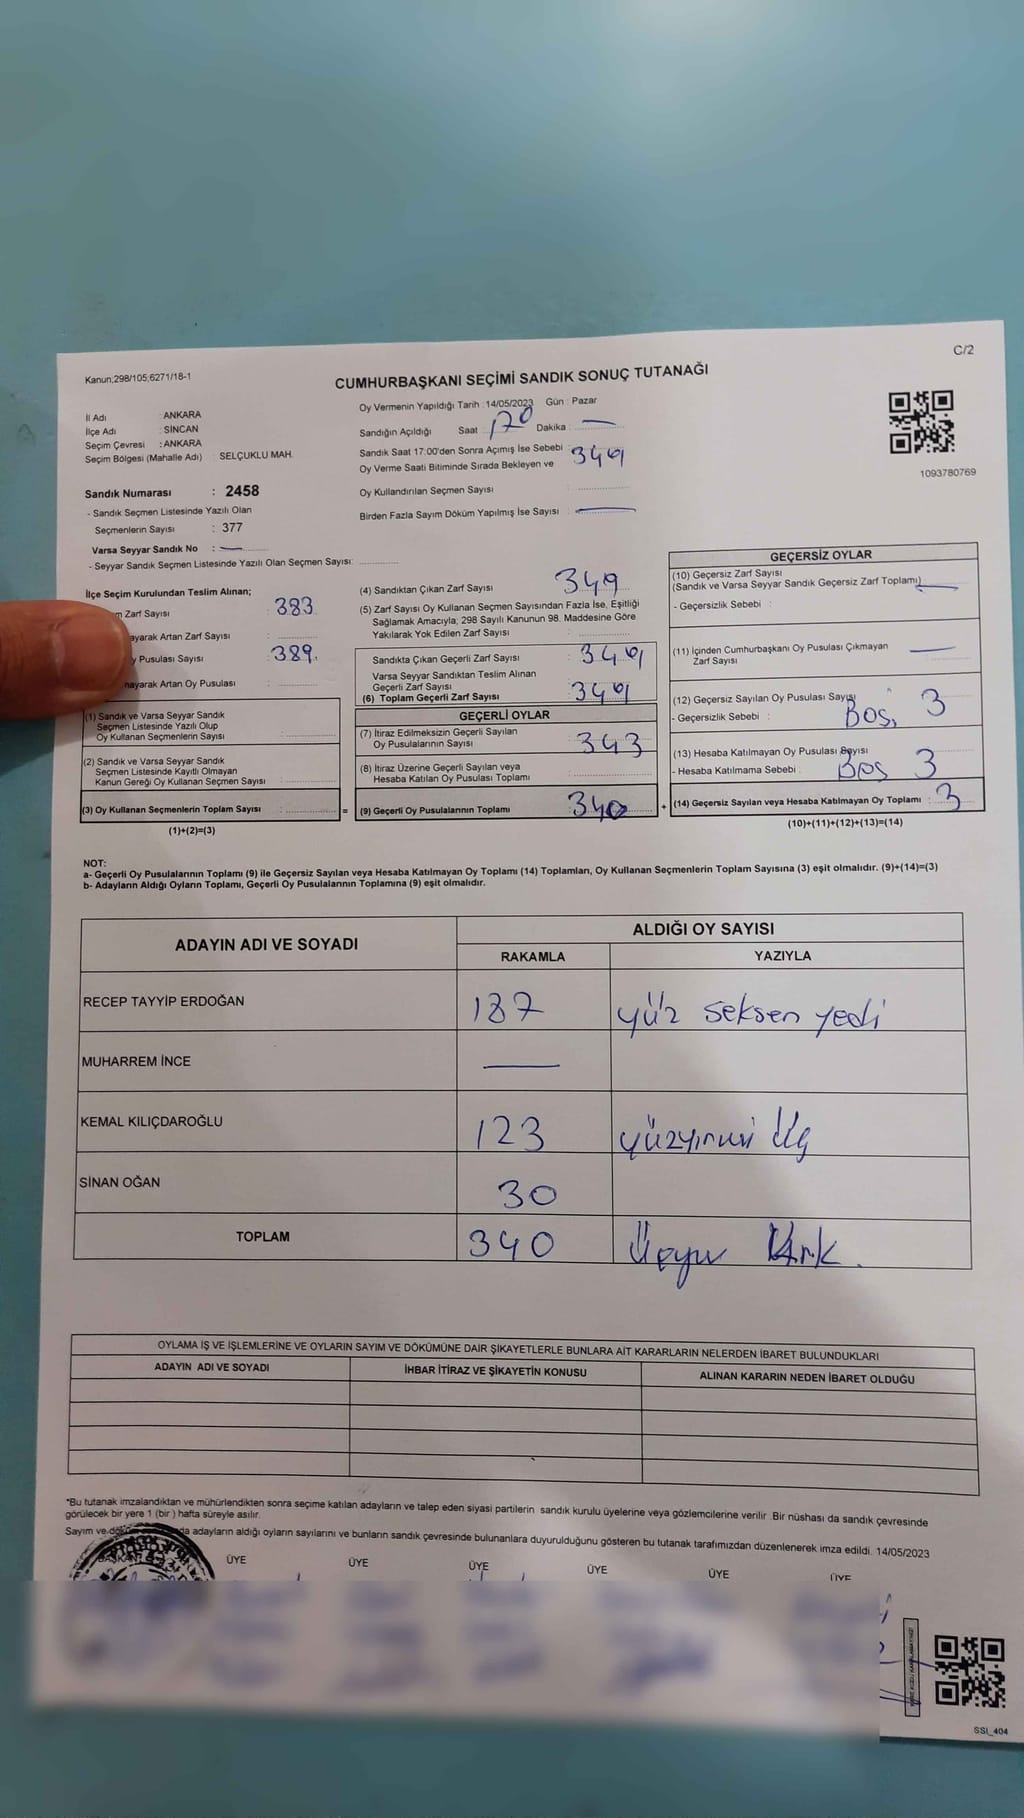 C/2
Kanun;298/105;6271/18-1
CUMHURBAŞKANI SEÇİMİ SANDIK SONUÇ TUTANAĞI
İl Adı : ANKARA
İlçe Adı : SİNCAN
Seçim Çevresi : ANKARA
Seçim Bölgesi (Mahalle Adı) : SELÇUKLU MAH.
Sandık Numarası : 2458
- Sandık Seçmen Listesinde Yazılı Olan
Seçmenlerin Sayısı : 377
Varsa Seyyar Sandık No : —
- Seyyar Sandık Seçmen Listesinde Yazılı Olan Seçmen Sayısı:
Oy Vermenin Yapıldığı Tarih : 14/05/2023 Gün : Pazar
Sandığın Açıldığı Saat : 170 Dakika : —
Sandık Saat 17:00'den Sonra Açımış İse Sebebi
Oy Verme Saati Bitiminde Sırada Bekleyen ve 349
Oy Kullandırılan Seçmen Sayısı :
Birden Fazla Sayım Döküm Yapılmış İse Sayısı : —
1093780769
İlçe Seçim Kurulundan Teslim Alınan;
m Zarf Sayısı : 383
ayarak Artan Zarf Sayısı :
y Pusulası Sayısı : 389.
nayarak Artan Oy Pusulası :
(1) Sandık ve Varsa Seyyar Sandık
Seçmen Listesinde Yazılı Olup
Oy Kullanan Seçmenlerin Sayısı :
(2) Sandık ve Varsa Seyyar Sandık
Seçmen Listesinde Kayıtlı Olmayan
Kanun Gereği Oy Kullanan Seçmen Sayısı :
(3) Oy Kullanan Seçmenlerin Toplam Sayısı : =
(1)+(2)=(3)
(4) Sandıktan Çıkan Zarf Sayısı : 349
(5) Zarf Sayısı Oy Kullanan Seçmen Sayısından Fazla İse, Eşitliği
Sağlamak Amacıyla; 298 Sayılı Kanunun 98. Maddesine Göre
Yakılarak Yok Edilen Zarf Sayısı :
Sandıkta Çıkan Geçerli Zarf Sayısı : 349
Varsa Seyyar Sandıktan Teslim Alınan
Geçerli Zarf Sayısı :
(6) Toplam Geçerli Zarf Sayısı : 349
GEÇERLİ OYLAR
(7) İtiraz Edilmeksizin Geçerli Sayılan
Oy Pusulalarının Sayısı : 343
(8) İtiraz Üzerine Geçerli Sayılan veya
Hesaba Katılan Oy Pusulası Toplamı :
(9) Geçerli Oy Pusulalarının Toplamı : 340 +
GEÇERSİZ OYLAR
(10) Geçersiz Zarf Sayısı
(Sandık ve Varsa Seyyar Sandık Geçersiz Zarf Toplamı) —
- Geçersizlik Sebebi :
(11) İçinden Cumhurbaşkanı Oy Pusulası Çıkmayan
Zarf Sayısı : —
(12) Geçersiz Sayılan Oy Pusulası Sayısı : 3
- Geçersizlik Sebebi : Boş,
(13) Hesaba Katılmayan Oy Pusulası Sayısı
- Hesaba Katılmama Sebebi : Boş 3
(14) Geçersiz Sayılan veya Hesaba Katılmayan Oy Toplamı : 3
(10)+(11)+(12)+(13)=(14)
NOT:
a- Geçerli Oy Pusulalarının Toplamı (9) ile Geçersiz Sayılan veya Hesaba Katılmayan Oy Toplamı (14) Toplamları, Oy Kullanan Seçmenlerin Toplam Sayısına (3) eşit olmalıdır. (9)+(14)=(3)
b- Adayların Aldığı Oyların Toplamı, Geçerli Oy Pusulalarının Toplamına (9) eşit olmalıdır.
ADAYIN ADI VE SOYADI
ALDIĞI OY SAYISI
RAKAMLA YAZIYLA
RECEP TAYYİP ERDOĞAN 187 yüz seksen yedi
MUHARREM İNCE —
KEMAL KILIÇDAROĞLU 123 yüzyirmi Üç
SİNAN OĞAN 30
TOPLAM 340 Üçyuz Kırk.
OYLAMA İŞ VE İŞLEMLERİNE VE OYLARIN SAYIM VE DÖKÜMÜNE DAİR ŞİKAYETLERLE BUNLARA AİT KARARLARIN NELERDEN İBARET BULUNDUKLARI
ADAYIN ADI VE SOYADI İHBAR İTİRAZ VE ŞİKAYETİN KONUSU ALINAN KARARIN NEDEN İBARET OLDUĞU
*Bu tutanak imzalandıktan ve mühürlendikten sonra seçime katılan adayların ve talep eden siyasi partilerin sandık kurulu üyelerine veya gözlemcilerine verilir .Bir nüshası da sandık çevresinde
görülecek bir yere 1 (bir ) hafta süreyle asılır.
Sayım ve da adayların aldığı oyların sayılarını ve bunların sandık çevresinde bulunanlara duyurulduğunu gösteren bu tutanak tarafımızdan düzenlenerek imza edildi. 14/05/2023
BAŞKAN ÜYE ÜYE ÜYE ÜYE ÜYE ÜYE
SSI_404